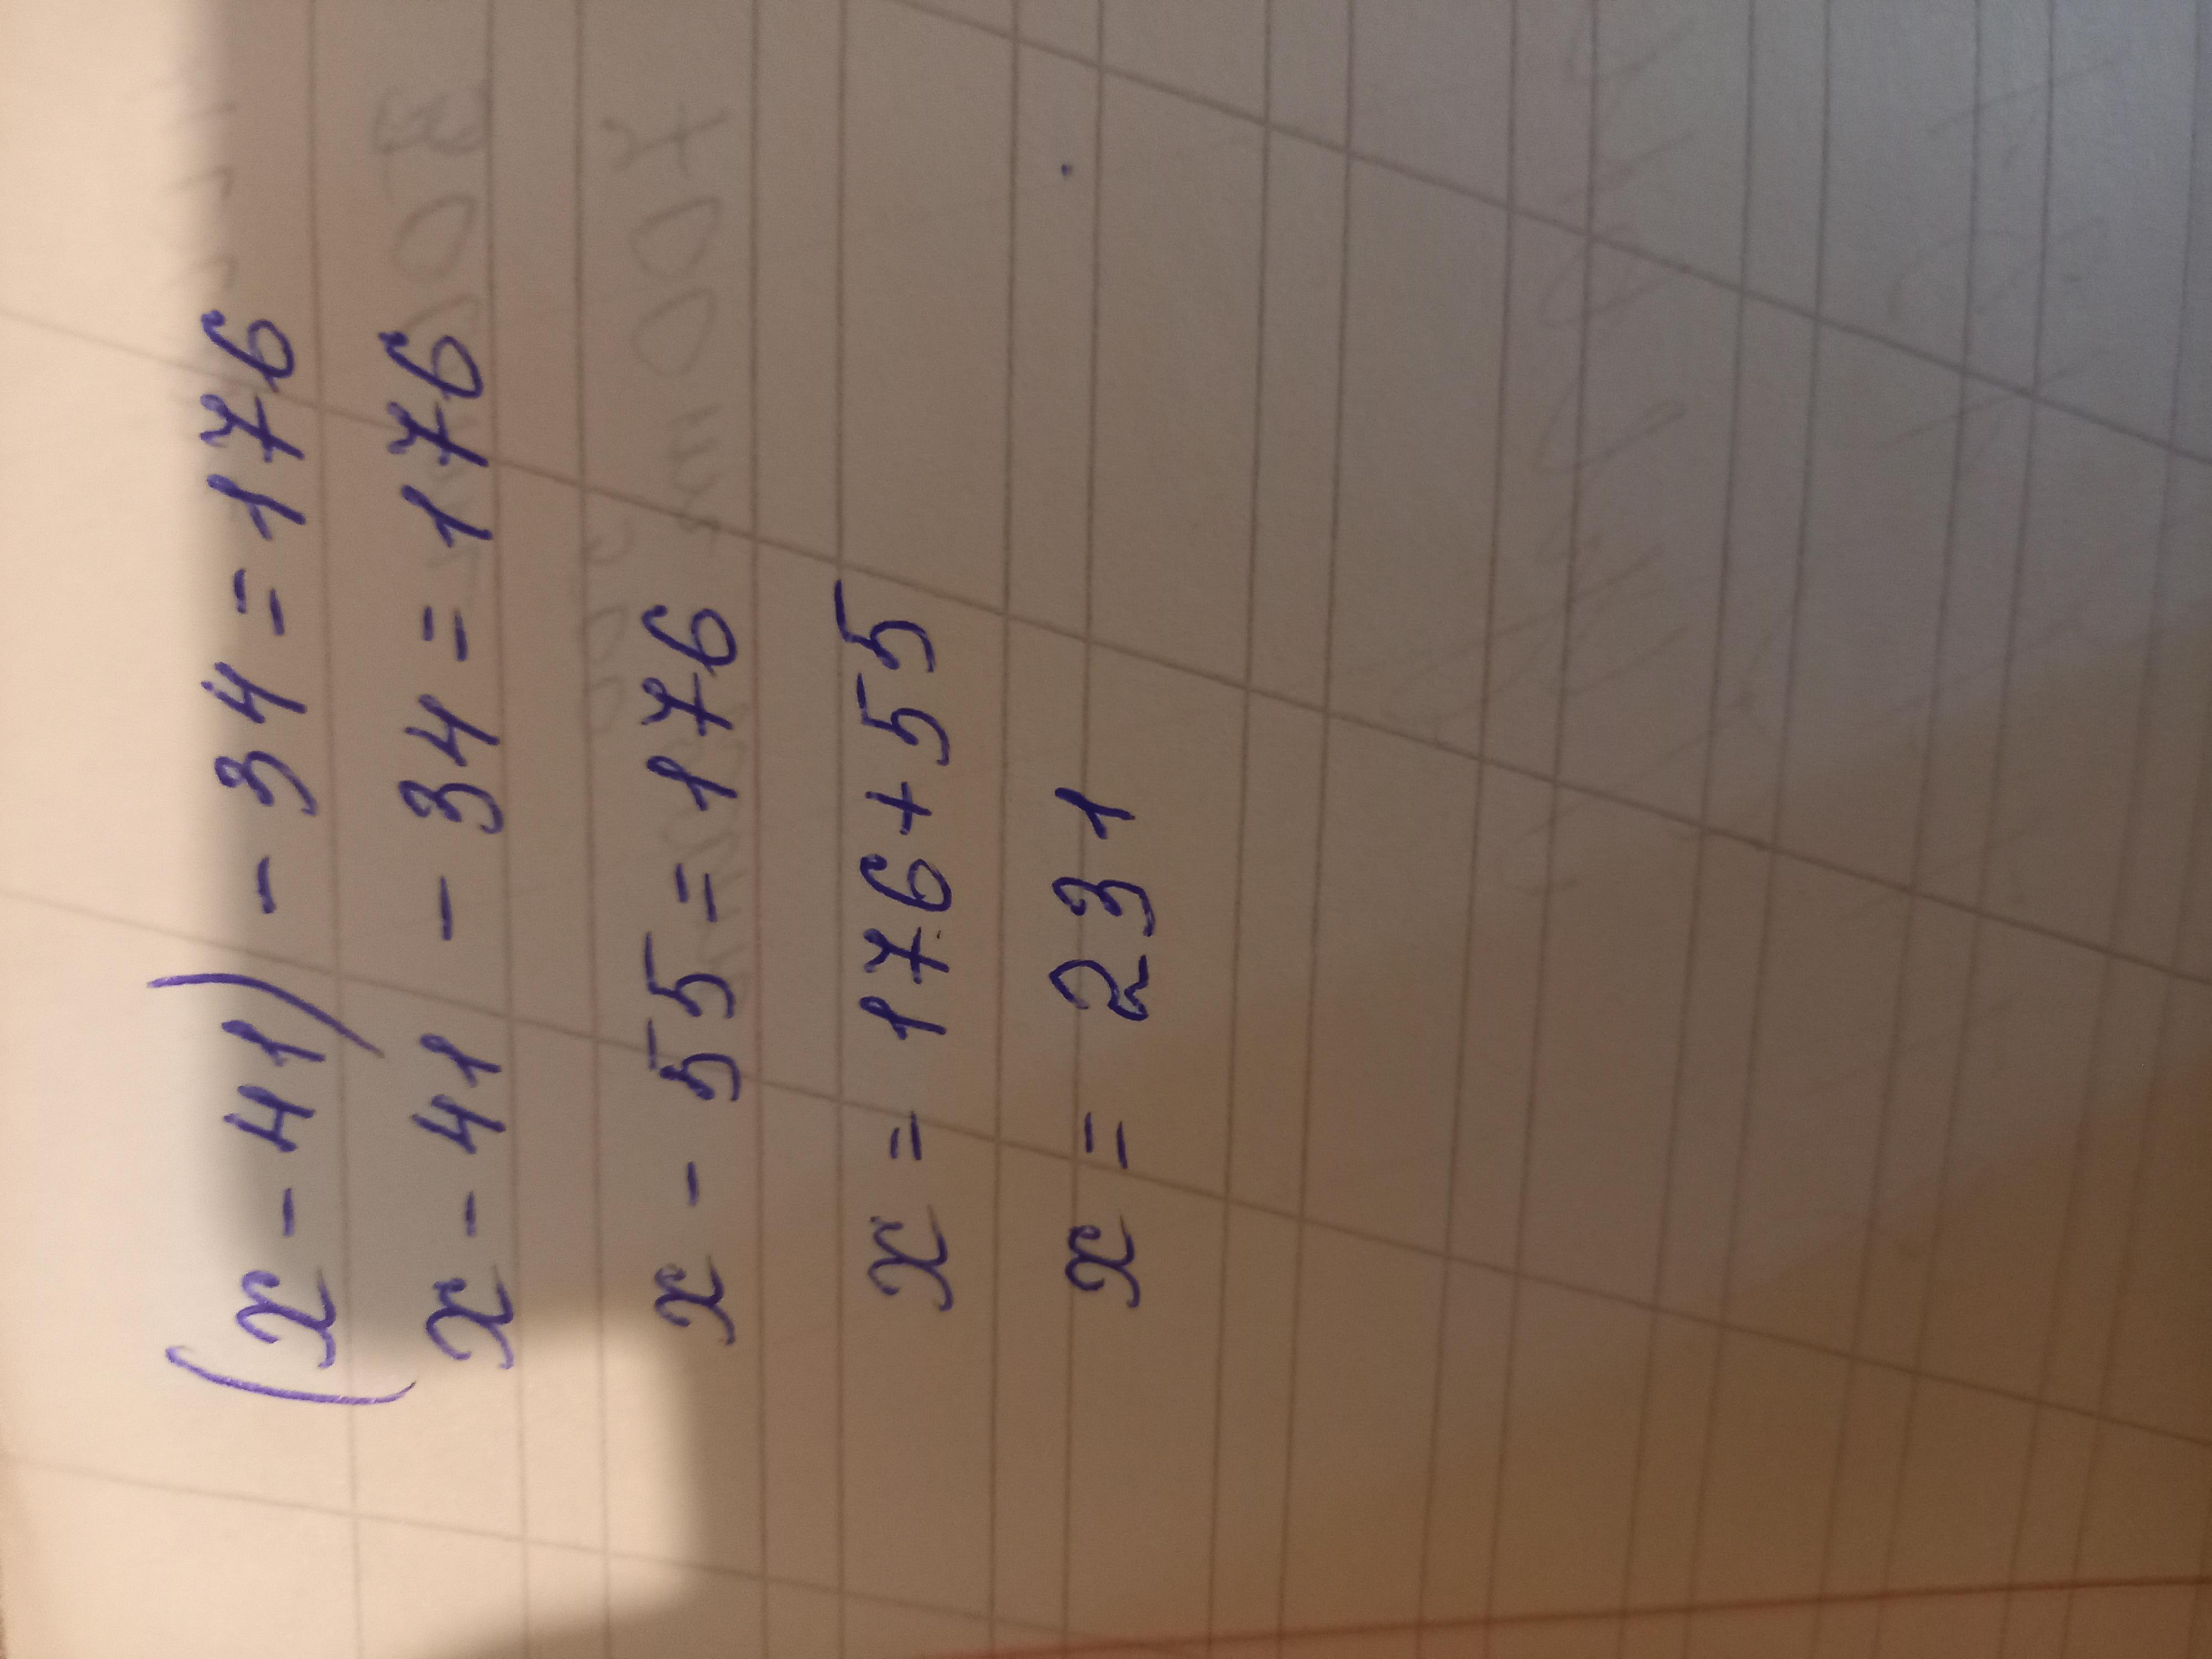 (x - 41) - 34 = 176
x - 41 - 34 = 176
x - 55 = 176
x = 176 + 55
x = 231